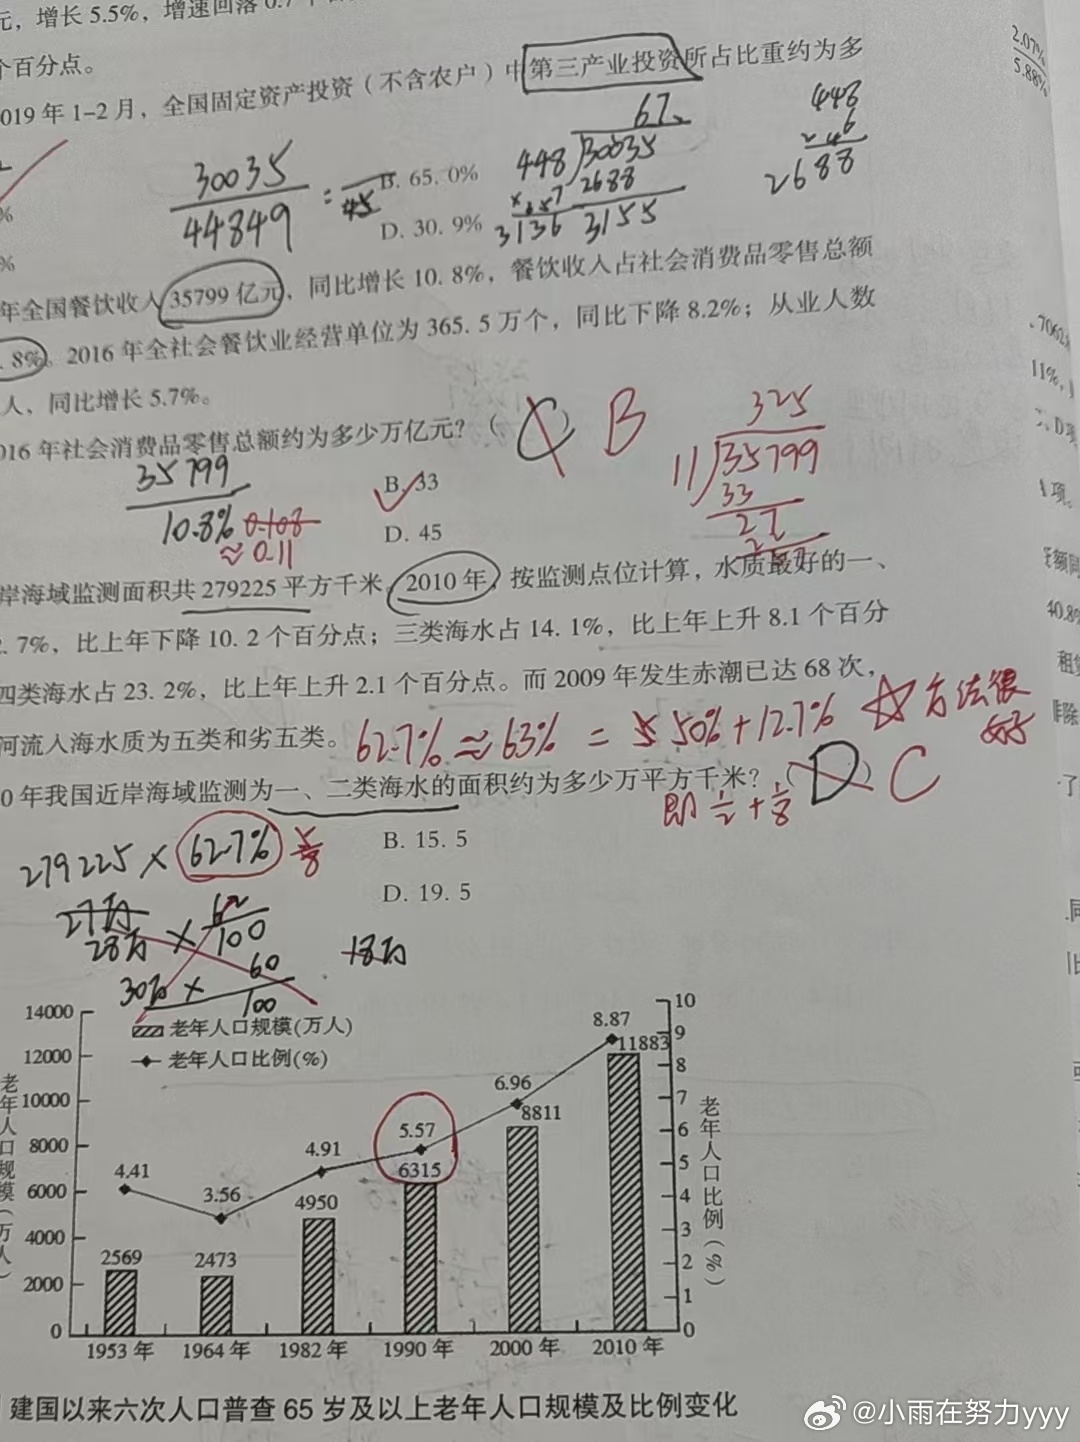 元，增长 5.5%，增速回落 0.7 个百
个百分点。
019 年 1-2 月，全国固定资产投资（不含农户）中第三产业投资所占比重约为多
30035
44849
=
45
B. 65. 0%
D. 30. 9%
67
448
30035
2688
3155
3136
448
6
2688
2.07%
5.88%
年全国餐饮收入 35799 亿元，同比增长 10. 8%，餐饮收入占社会消费品零售总额
. 8%。2016 年全社会餐饮业经营单位为 365. 5 万个，同比下降 8.2%；从业人数
人，同比增长 5.7%。
016 年社会消费品零售总额约为多少万亿元？（C）B
35799
10.8% 0.108
≈ 0.11
B. 33
D. 45
325
11
35799
33
27
岸海域监测面积共 279225 平方千米。2010 年，按监测点位计算，水质最好的一、
2. 7%，比上年下降 10. 2 个百分点；三类海水占 14. 1%，比上年上升 8.1 个百分
四类海水占 23. 2%，比上年上升 2.1 个百分点。而 2009 年发生赤潮已达 68 次，
河流入海水质为五类和劣五类。
62.7% ≈ 63% = 50% + 12.7% ☆方法很好
0 年我国近岸海域监测为一、二类海水的面积约为多少万平方千米？（D）C
即 1/2 + 1/8
279225 × 62.7% 5/8
B. 15. 5
D. 19. 5
27万
28万 × 62/100
30万 × 60/100
18万
老年人口规模(万人)
老年人口比例(%)
14000
12000
10000
8000
6000
4000
2000
0
老年人口规模（万人）
10
9
8
7
6
5
4
3
2
1
0
老年人口比例（%）
4.41
3.56
4.91
5.57
6.96
8.87
2569
2473
4950
6315
8811
11883
1953 年 1964 年 1982 年 1990 年 2000 年 2010 年
建国以来六次人口普查 65 岁及以上老年人口规模及比例变化
@小雨在努力yyy